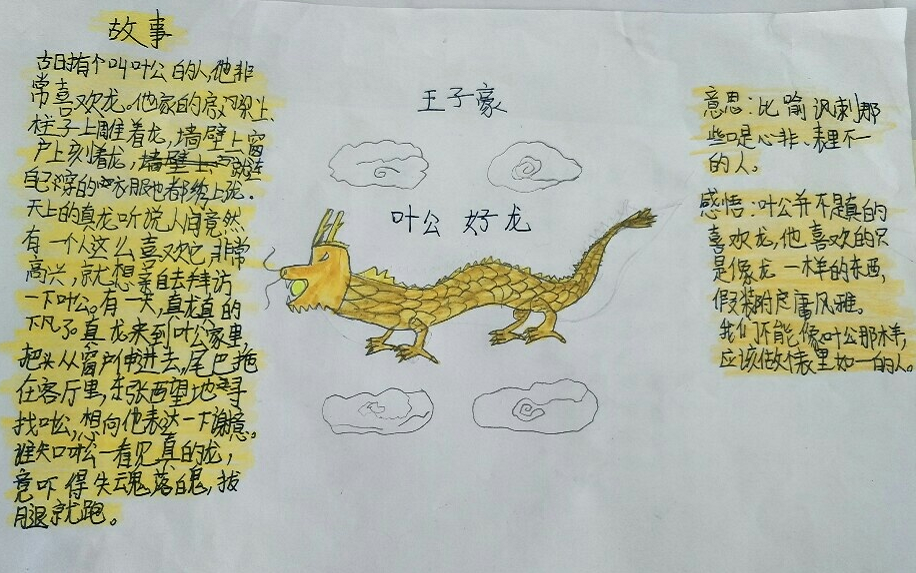 故事
古时有个叫叶公的人,他非
常喜欢龙。他家的房梁上、
柱子上雕着龙,墙壁上窗
户上刻着龙,就连
自己穿的衣服他都绣上龙。
天上的真龙听说人间竟然
有一个人这么喜欢它,非常
高兴,就想亲自去拜访
一下叶公。有一天,真龙真的
下凡了。真龙来到叶公家里,
把头从窗户伸进去,尾巴拖
在客厅里,东张西望地寻
找叶公,想向他表达一下谢意。
谁知叶公一看见真的龙,
竟吓得失魂落魄,拔
腿就跑。
王子豪
叶公好龙
意思:比喻讽刺那
些口是心非、表里不一
的人。
感悟:叶公并不是真的
喜欢龙,他喜欢的只
是像龙一样的东西,
假装附庸风雅。
我们不能像叶公那样,
应该做表里如一的人。